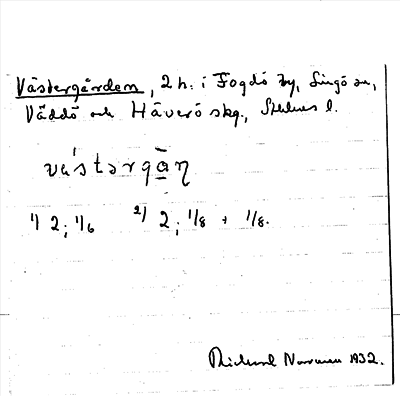 Västergården, 2 h. i Fogdö by, Singö sn,
Väddö och Häverö skg, Sthlms l.
västərgąņ
1) 2; 1/6 2) 2; 1/8 + 1/8.
Richard Norrman 1932.